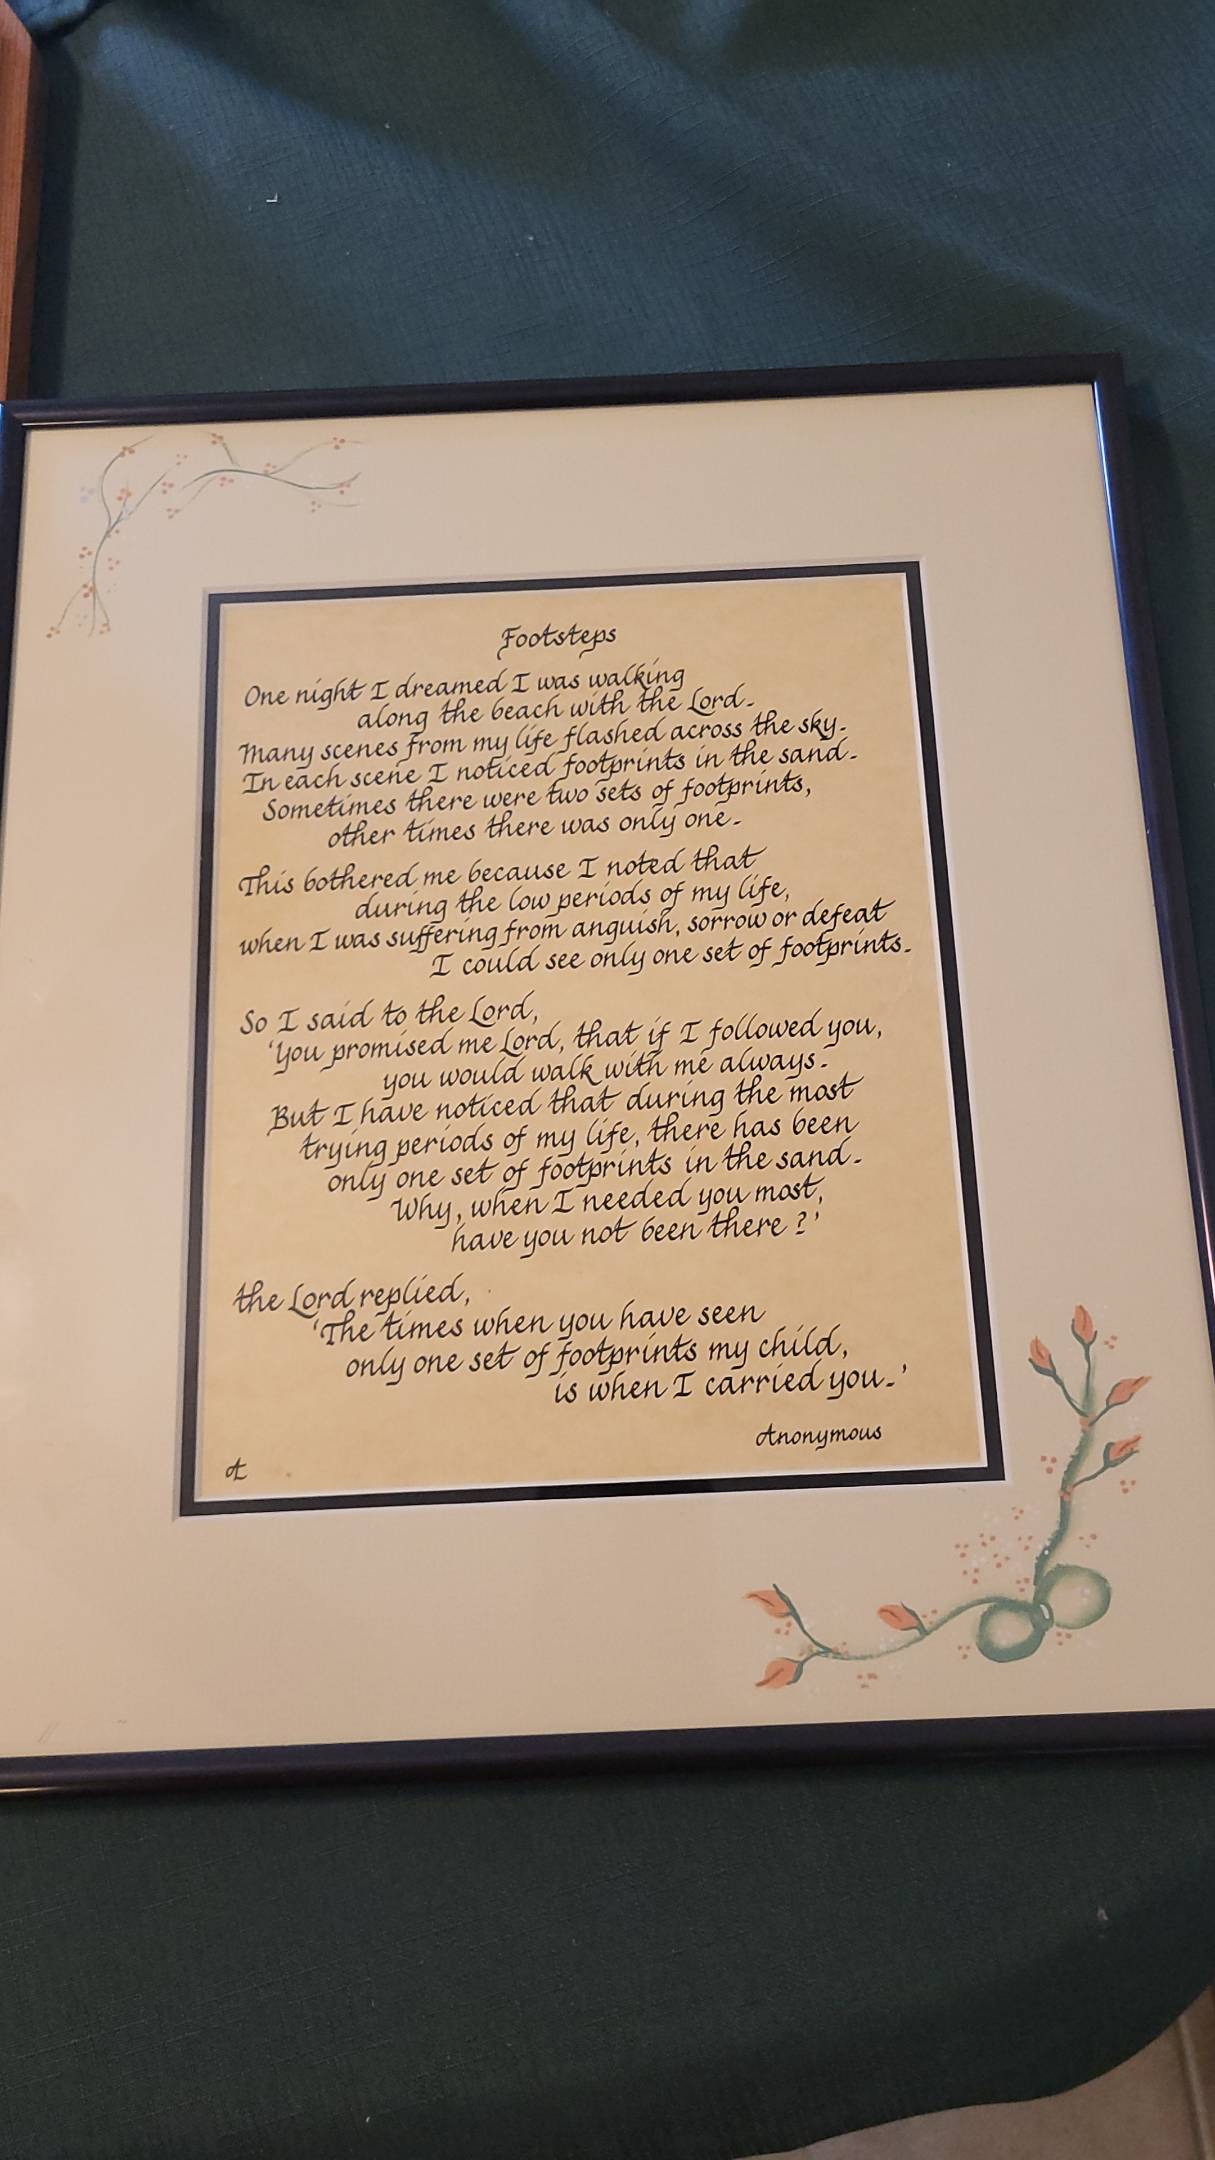 Footsteps
One night I dreamed I was walking
along the beach with the Lord.
Many scenes from my life flashed across the sky.
In each scene I noticed footprints in the sand.
Sometimes there were two sets of footprints,
other times there was only one.
This bothered me because I noted that
during the low periods of my life,
when I was suffering from anguish, sorrow or defeat
I could see only one set of footprints.
So I said to the Lord,
'You promised me Lord, that if I followed you,
you would walk with me always.
But I have noticed that during the most
trying periods of my life, there has been
only one set of footprints in the sand.
Why, when I needed you most,
have you not been there?'
the Lord replied,
'The times when you have seen
only one set of footprints my child,
is when I carried you.'
Anonymous